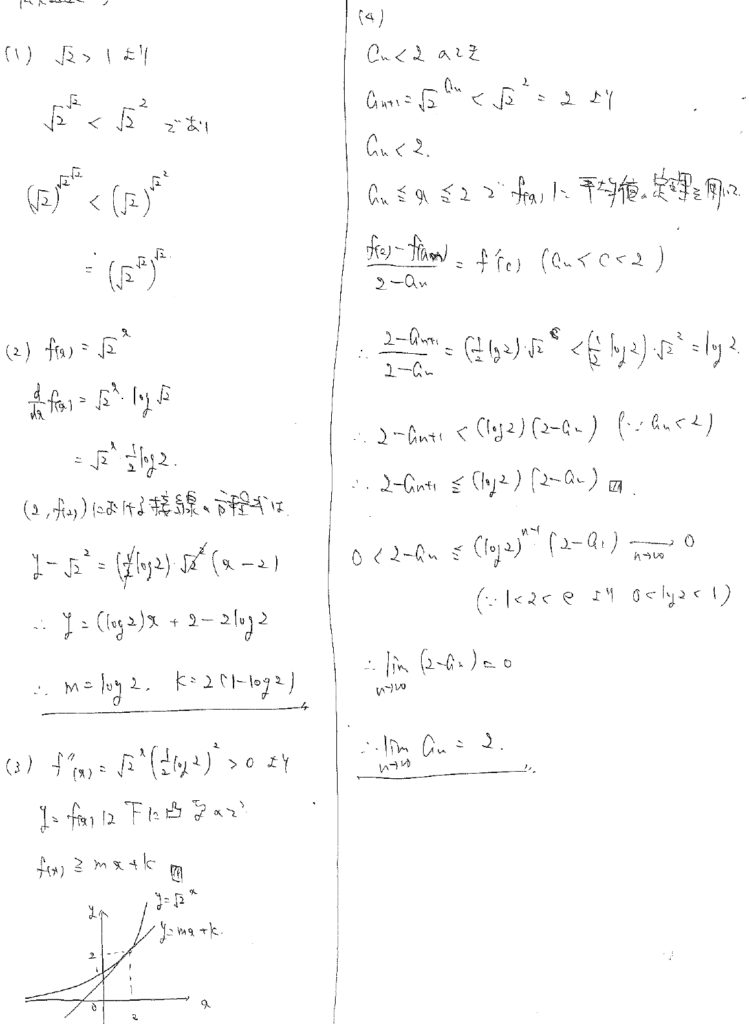 (1) √2 > 1 より
√2^√2 < √2^2 であり
(√2)^√2^√2 < (√2)^√2^2
= (√2^√2)^√2
(2) f(x) = √2^x
d/dx f(x) = √2^x · log √2
= √2^x 1/2 log2.
(2, f(2)) における接線の方程式は
y - √2^2 = (1/2 log2) √2^2 (x - 2)
∴ y = (log2)x + 2 - 2log2
∴ m = log2. k = 2(1-log2)
(3) f''(x) = √2^x (1/2 log2)^2 > 0 より
y = f(x) は下に凸
f(x) ≧ mx+k
y
y=√2^x
y=mx+k
2
1
0
2
x
(4)
an < 2 のとき
an+1 = √2^an < √2^2 = 2 より
an < 2.
an ≦ x ≦ 2 で f(x) に平均値の定理を用いて
f(2) - f(an) / 2 - an = f'(c) (an < c < 2)
∴ 2 - an+1 / 2 - an = (1/2 log2) · √2^c < (1/2 log2) · √2^2 = log2.
∴ 2 - an+1 < (log2)(2 - an) (∵ an < 2)
∴ 2 - an+1 ≦ (log2)(2 - an)
0 < 2 - an ≦ (log2)^n-1 (2 - a1) → 0 n→∞
(∵ 1 < 2 < e より 0 < log2 < 1)
∴ lim n→∞ (2 - an) = 0
∴ lim n→∞ an = 2.